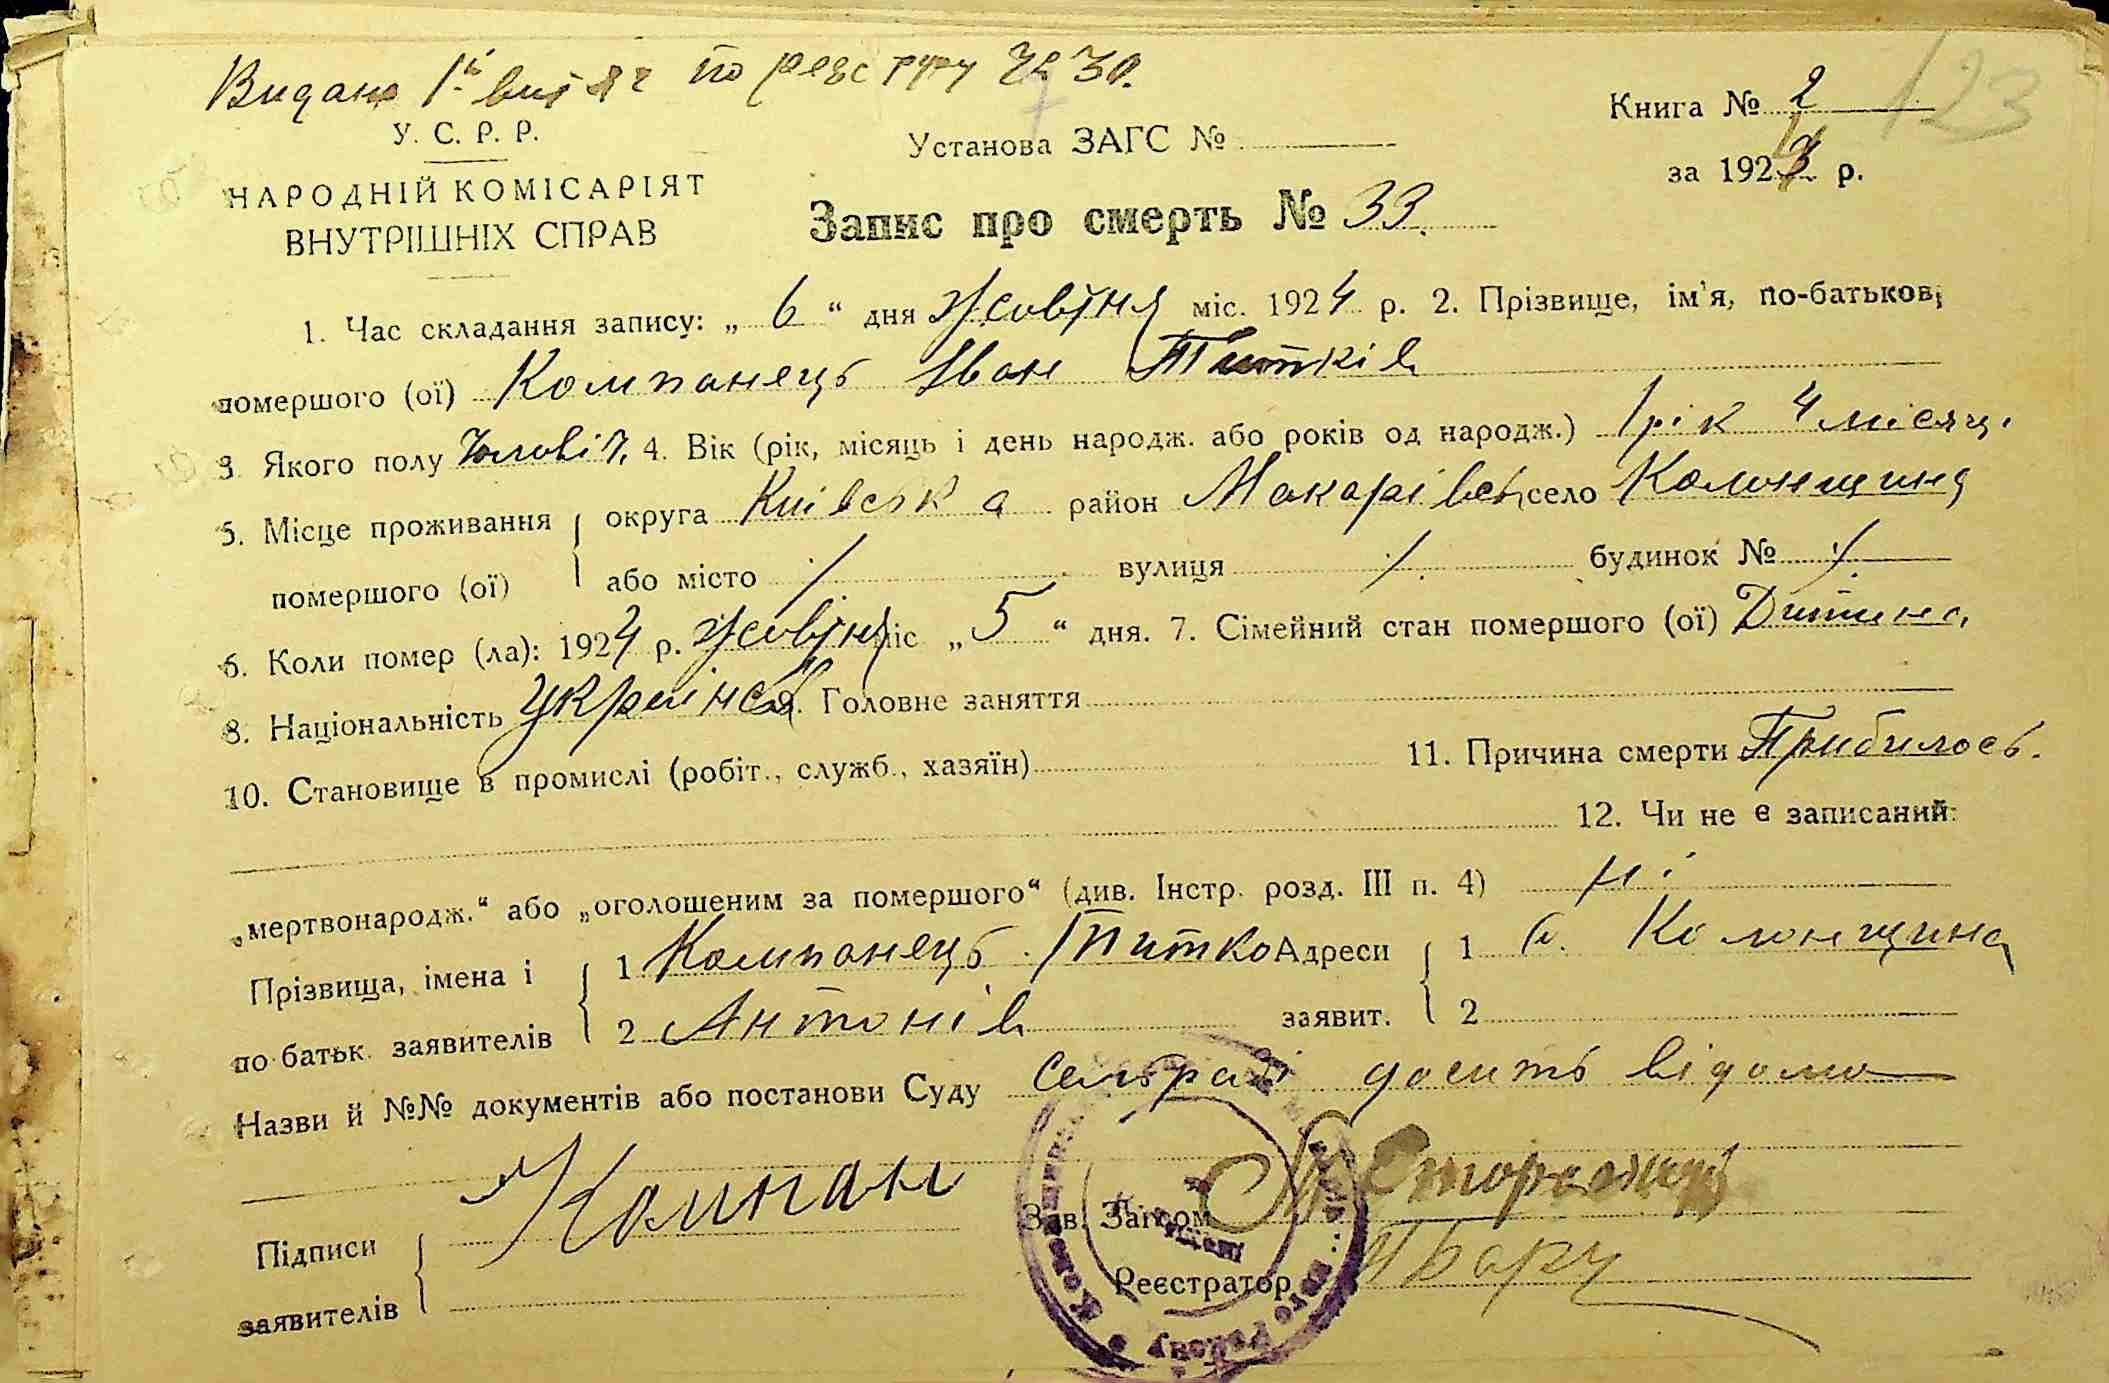 Видано 1й витяг по реєстру № 30.
123
У. С. Р. Р.
НАРОДНІЙ КОМІСАРІЯТ
ВНУТРІШНІХ СПРАВ
Установа ЗАГС №
Книга № 2
за 1924 р.
Запис про смерть № 33.
1. Час складання запису: „ 6 “ дня Жовтня міс. 1924 р. 2. Прізвище, ім'я, по-батькові
помершого (ої) Компанець Іван Титків
3. Якого полу Чоловіч. 4. Вік (рік, місяць і день народж. або років од народж.) 1 рік 4 місяці
5. Місце проживання округа Київська район Макарівськ село Колонщина
помершого (ої) або місто / вулиця / будинок № /
6. Коли помер (ла): 1924 р. Жовтня міс „ 5 “ дня. 7. Сімейний стан помершого (ої) Дитина
8. Національність українець 9. Головне заняття
10. Становище в промислі (робіт., служб., хазяїн) 11. Причина смерти Прибилось.
12. Чи не є записаний:
„мертвонародж.“ або „оголошеним за помершого“ (див. Інстр. розд. III п. 4) Ні
Прізвища, імена і 1 Компанець Титко Адреси 1 с. Колонщина
по батьк. заявителів 2 Антонів заявит. 2
Назви й №№ документів або постанови Суду Сельраді досить відомо
Підписи Компан Зав. Загсом
заявителів Реєстратор